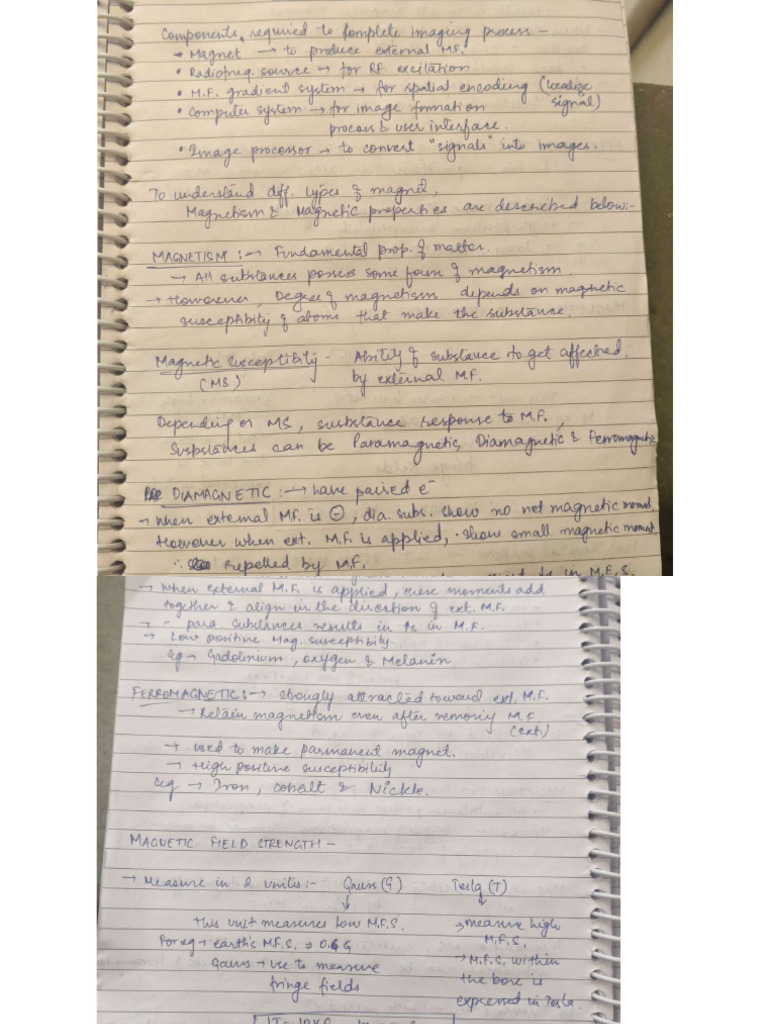 Components required to complete imaging process -
→ Magnet → to produce external M.F.
• Radiofreq. source → for RF excitation
• M.F. gradient system → for spatial encoding (localize signal)
• Computer system → for image formation
process & user interface.
• Image processor → to convert "signals" into images.
To understand diff. types of magnet,
Magnetism & Magnetic properties are described below:-
MAGNETISM :→ Fundamental prop. of matter.
→ All substances possess some form of magnetism.
→ However, Degree of magnetism depends on magnetic
susceptibity of atoms that make the substance.
Magnetic susceptibility - Ability of substance to get affected
(MS) by external M.F.
Depending on MS, substance response to M.F.,
Suspstances can be Paramagnetic, Diamagnetic & Ferromagnetic
DIAMAGNETIC :→ have paired e⁻
→ When external M.F. is ⊖, dia. subs. show no net magnetic moment
However when ext. M.F. is applied, show small magnetic moment
∴ repelled by M.F.
in M.F.S.
→ When external M.F. is applied, these moments add
together & align in the direction of ext. M.F.
→ ∴ para. substances results in ↑s in M.F.
→ Low positive Mag. susceptibility.
eg → Gadolinium, oxygen & Melanin.
FERROMAGNETIC :→ strongly attracted toward ext. M.F.
→ Retain magnetism even after removing M.F.
(ext.)
→ used to make parmanent magnet.
→ High positive susceptibility
eg → Iron, cobalt & Nickle.
MAGNETIC FIELD STRENGTH -
→ Measure in 2 units :- Gauss (G) Tesla (T)
↓ ↓
this unit measures low M.F.S. → measure high
For eg → earth's M.F.S. ⇒ 0.6 G M.F.S.
Gauss → use to measure → M.F.S. within
fringe fields the bore is
expressed in Tesla.